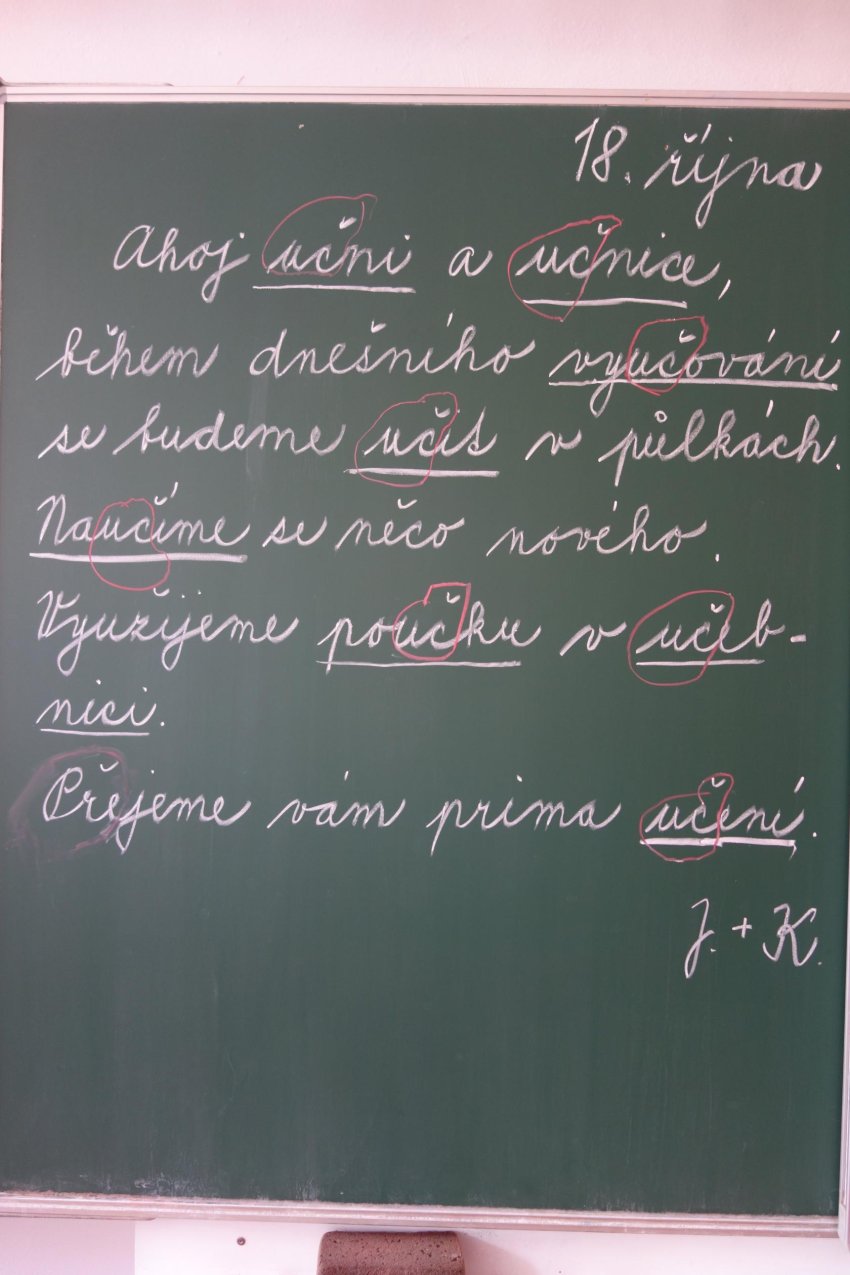 18. října
Ahoj učni a učnice,
během dnešního vyučování
se budeme učit v půlkách.
Naučíme se něco nového.
Využijeme poučku v učeb-
nici.
Přejeme vám prima učení.
J. + K.